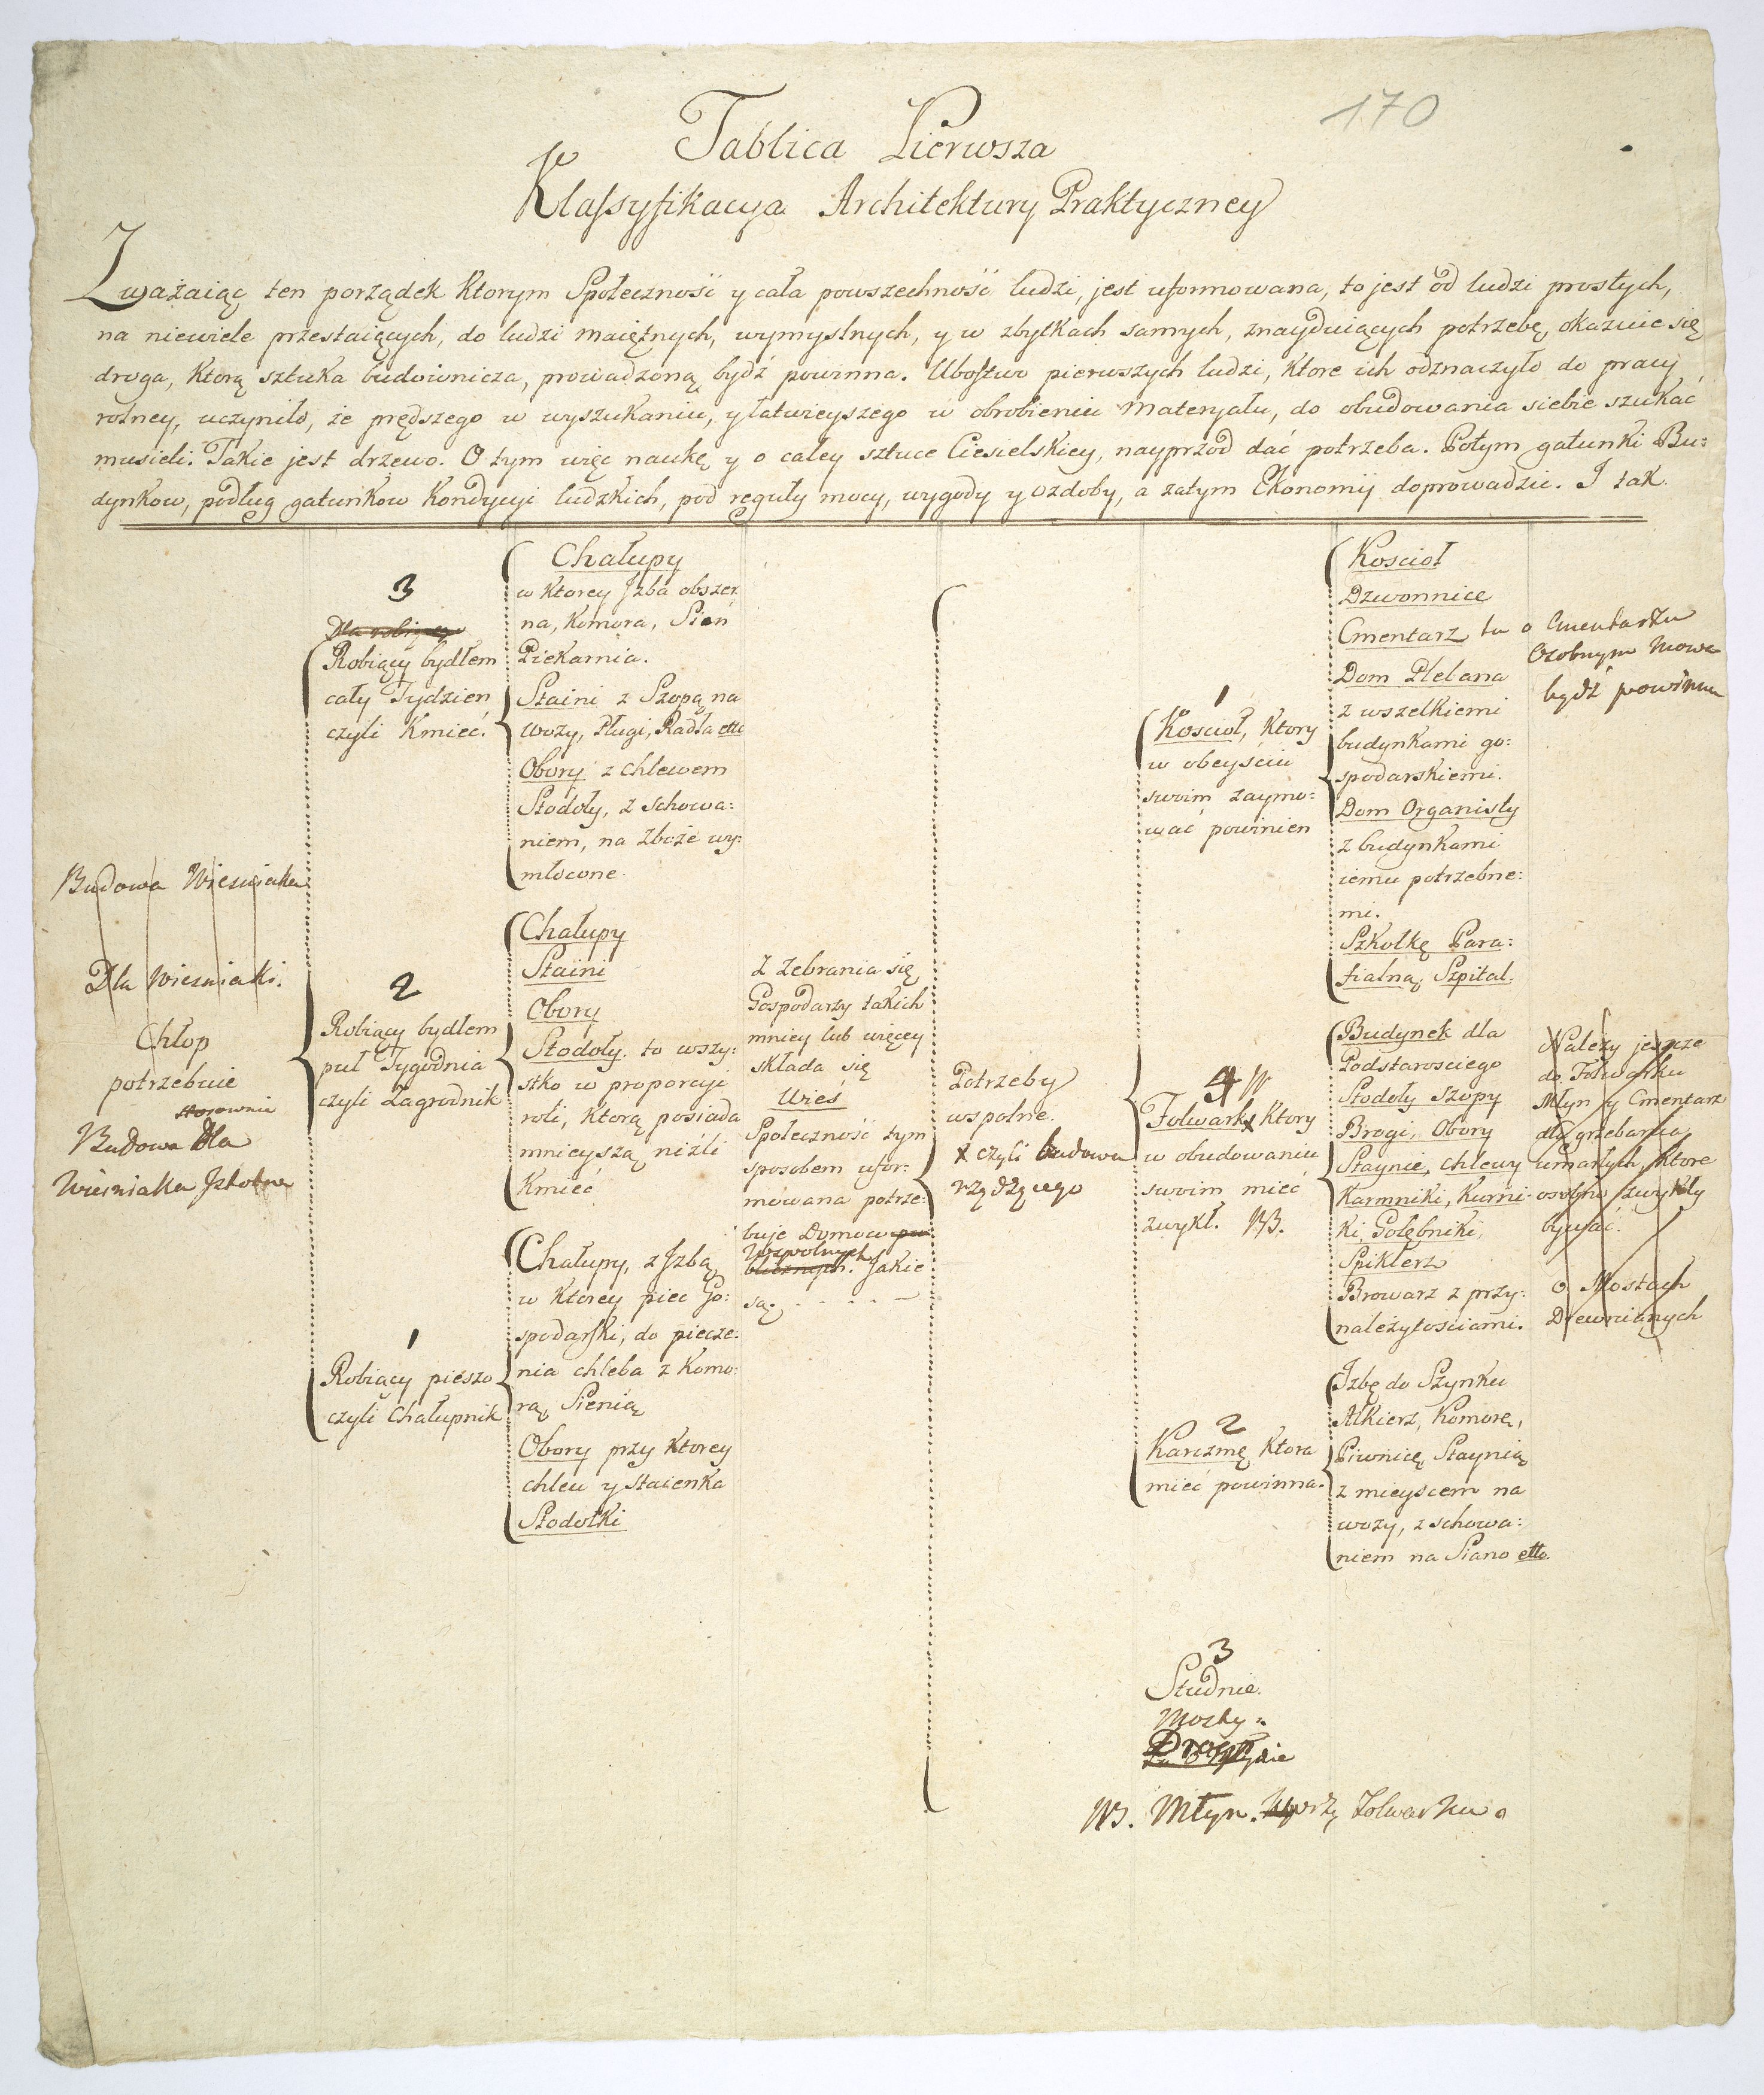 170
Tablica Pierwsza
Klassyfikacya Architektury Praktyczney
Zważaiąc ten porządek ktorym Społeczność y cała powszechność ludzi, jest uformowana, to jest od ludzi prostych,
na niewiele przestaiących, do ludzi maiętnych, wymyslnych, y w zbytkach samych, znayduiących potrzebę, okazuie się
droga, ktorą sztuka budownicza, prowadzoną bydź powinna. Ubostwo pierwszych ludzi, ktore ich odznaczyło do pracy
rolney, uczyniło, że prędszego w wyszukaniu, y łatwieyszego w obrobieniu materyału, do obudowania siebie szukać
musieli. Takie jest drzewo. O tym więc naukę y o całey sztuce Ciesielskiey, nayprzod dać potrzeba. Potym gatunki Bu:
dynkow, podług gatunkow Kondycyi ludzkich, pod reguły mocy, wygody y ozdoby, a zatym Ekonomij doprowadzic. I tak.
Budowa Wiesniaka
Dla Wiesniaki.
Chłop
potrzebuie
stosownie
Budowa Dla
Wiesniaka Istotna
3
Dla robiący
Robiący bydłem
cały Tydzien
czyli Kmieć.
2
Robiący bydłem
puł Tygodnia
czyli Zagrodnik
1
Robiący pieszo
czyli Chałupnik
Chałupy
w ktorey Izba obszer
na, Komora, Sien
Piekarnia.
Staini z Szopą na
wozy, Pługi, Radła etto
Obory z chlewem
Stodoły, z schowa:
niem, na zboże wy:
młocone.
Chałupy
Staini
Obory
Stodoły. to wszy:
stko w proporcyi
roli, ktorą posiada
mnieyszą niźli
Kmieć
Chałupy, z Izbą
w ktorey piec Go:
spodarski, do piecze:
nia chleba z Komo:
rą, Sienią
Obory przy ktorey
chlew y staienka
Stodołki
Z zebrania się
Gospodarzy takich
mniey lub więcey
składa się
Wieś
Społeczność tym
sposobem ufor:
mowana potrze:
buje Domow pu
Wspolnych
blicznych. Jakie
są. - - - - -
Potrzeby
wspolne.
x czyli budowa
rządzącego
1
Kościoł, ktory
w obeyściu
swoim zaymo:
wać powinien
4
Folwark x ktory
w obudowaniu
swoim mieć
zwykł. NB.
2
Karczmę, ktora
mieć powinna.
3
Studnie.
Mosty
NB. Młyn. przy Folwarku.
Kościoł
Dzwonnice
Cmentarz tu o Cmentarzu
Osobnym mowa
bydź powinna
Dom Plebana
z wszelkiemi
budynkami go:
spodarskiemi.
Dom Organisty
z budynkami
iemu potrzebne:
mi.
Szkołkę Para:
fialną, Szpital.
Budynek dla
Podstarosciego
Stodoły Szopy
Brogi, Obory
Staynie, chlewy
Karmniki, Kurni-
ki, Gołębniki,
Spiklerz
Browarz z przy:
należytościami.
Należy jeszcze
do Folwarku
Młyn y Cmentarz
dla grzebania
umarłych, ktore
osobno zwykły
bywać.
O Mostach
Drewnianych
Izbę do Szynku
Alkierz, Komorę,
Piwnicę, Staynią
z mieyscem na
wozy, z schowa:
niem na Siano etto.